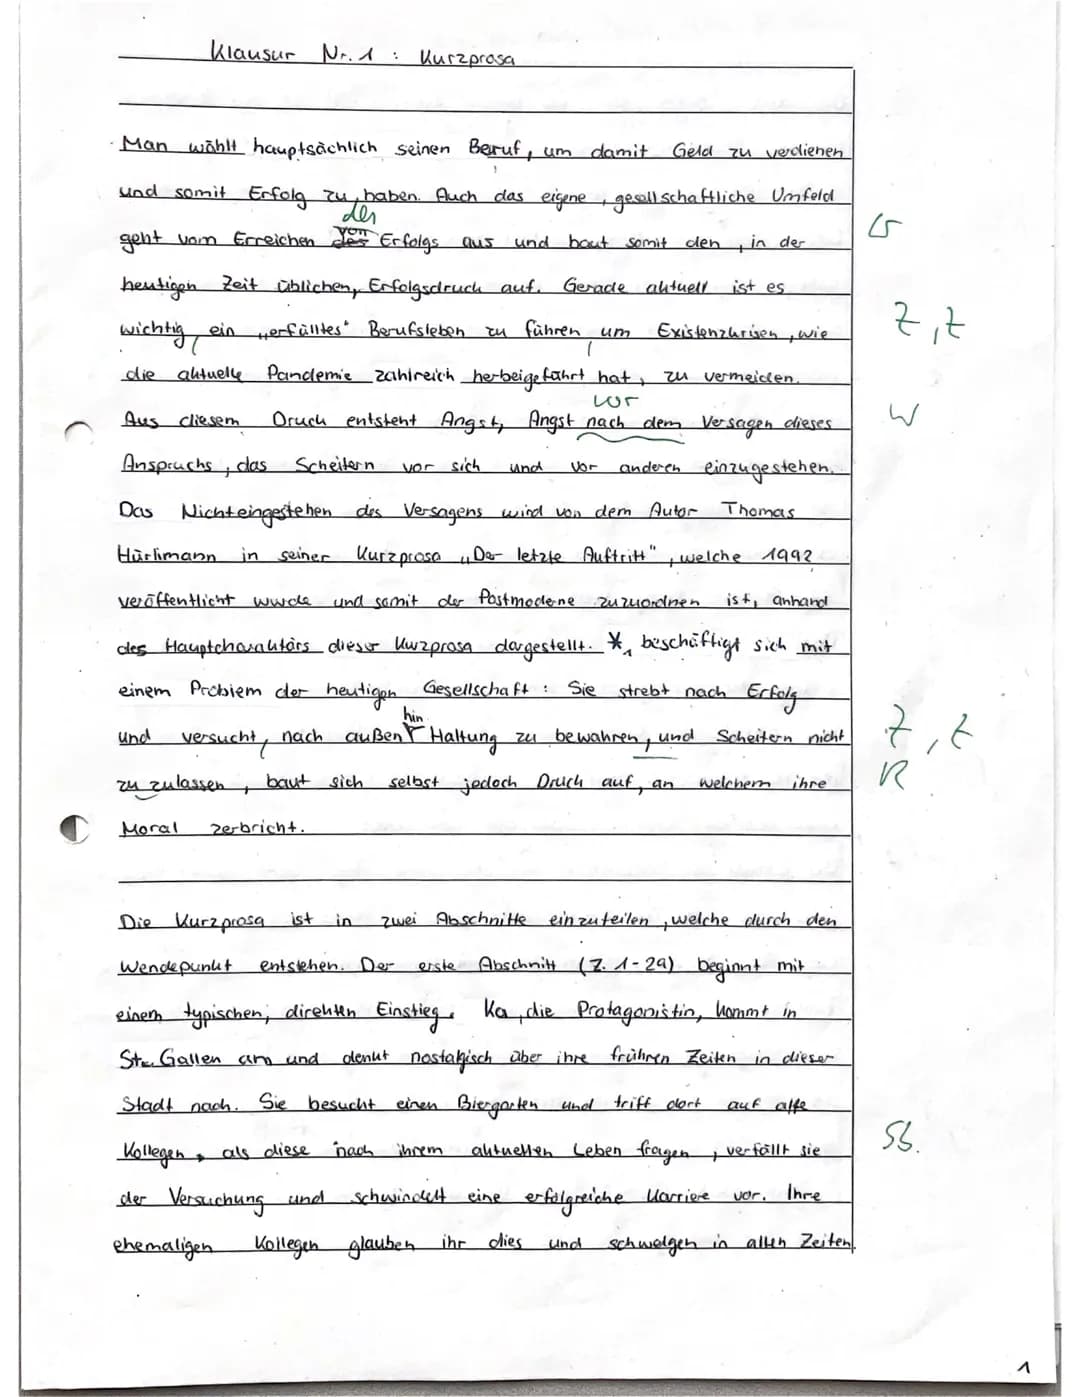 Klausur Nr. 1 : Kurzprosa
Man wählt hauptsächlich seinen Beruf, um damit Geld zu verdienen
und somit Erfolg zu haben. Auch das eigene, gesellschaftliche Umfeld
des
geht vom Erreichen von Erfolgs aus und baut somit den, in der
G
heutigen Zeit üblichen, Erfolgsdruck auf. Gerade aktuell ist es
wichtig, ein „erfülltes" Berufsleben zu führen, um Existenzkrisen, wie
Z, Z
die aktuelle Pandemie zahlreich herbeigeführt hat, zu vermeiden.
vor
Aus diesem Druck entsteht Angst, Angst nach dem Versagen dieses
W
Anspruchs, das Scheitern vor sich und vor anderen einzugestehen.
Das Nichteingestehen des Versagens wird von dem Autor Thomas
Hürlimann in seiner Kurzprosa „Der letzte Auftritt", welche 1992
veröffentlicht wurde und somit der Postmoderne zuzuordnen ist, anhand
des Hauptcharaktärs dieser Kurzprosa dargestellt. * beschäftigt sich mit
einem Problem der heutigen Gesellschaft: Sie strebt nach Erfolg
hin
und versucht, nach außen Haltung zu bewahren, und Scheitern nicht
Z, Z
zu zulassen, baut sich selbst jedoch Druck auf, an welchem ihre
R
Moral zerbricht.
Die Kurzprosa ist in zwei Abschnitte einzuteilen, welche durch den
Wendepunkt entstehen. Der erste Abschnitt (Z. 1-29) beginnt mit
einem typischen, direkten Einstieg. Ka, die Protagonistin, kommt in
St. Gallen an und denkt nostalgisch über ihre frühren Zeiten in dieser
Stadt nach. Sie besucht einen Biergarten und triff dort auf alte
Kollegen, als diese nach ihrem aktuellen Leben fragen, verfällt sie
Sb.
der Versuchung und schwindelt eine erfolgreiche Karriere vor. Ihre
ehemaligen Kollegen glauben ihr dies und schwelgen in alten Zeiten.
1